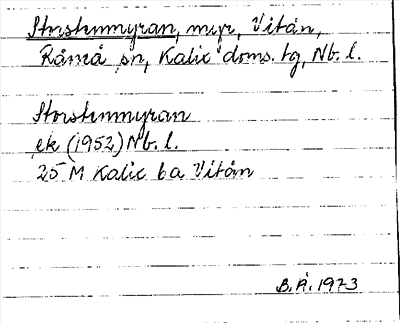 Storstenmyran, myr, Vitån,
Råneå sn, Kalix doms. tg, Nb. l.
Storstenmyran
ek (1952) Nb. l.
25 M Kalix 6a Vitån
B. Å. 1973